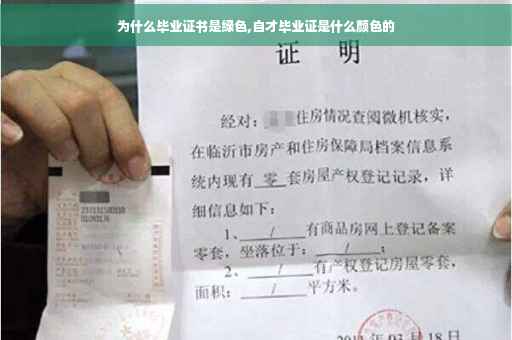 为什么毕业证书是绿色,自才毕业证是什么颜色的
证 明
经对: 住房情况查阅微机核实,
在临沂市房产和住房保障局档案信息系
统内现有 零 套房屋产权登记记录,详
细信息如下:
1、 / 有商品房网上登记备案
零套,坐落位于: / ;
2、 / 有产权登记房屋零套,
面积: / 平方米。